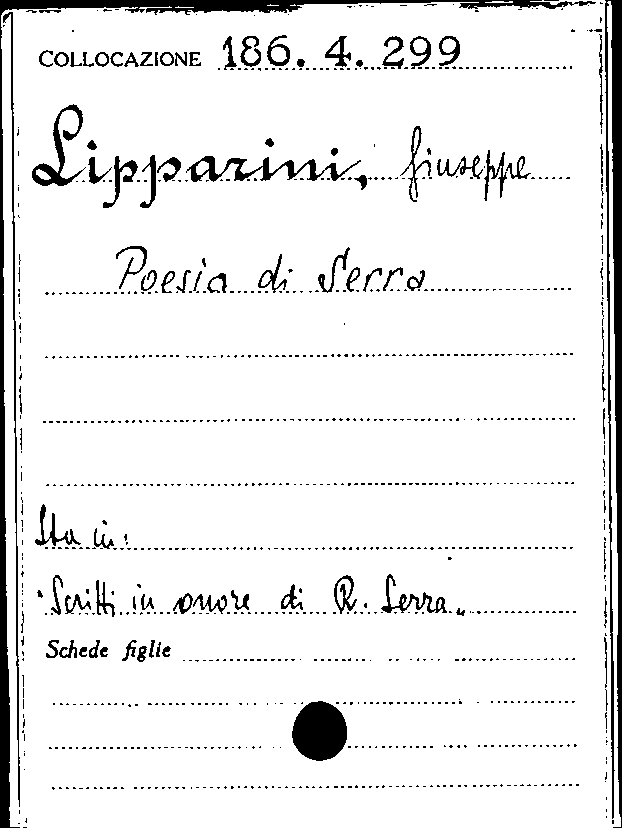 COLLOCAZIONE 186. 4. 299
Lipparini, Giuseppe
Poesia di Serra
Sta in:
"Scritti in onore di R. Serra„
Schede figlie